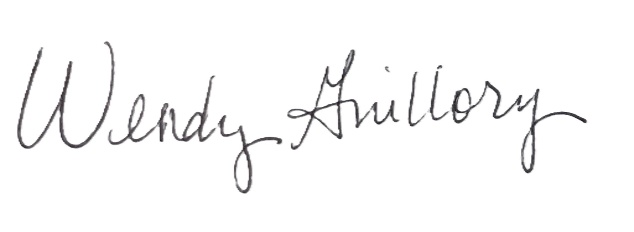 Wendy Guillory